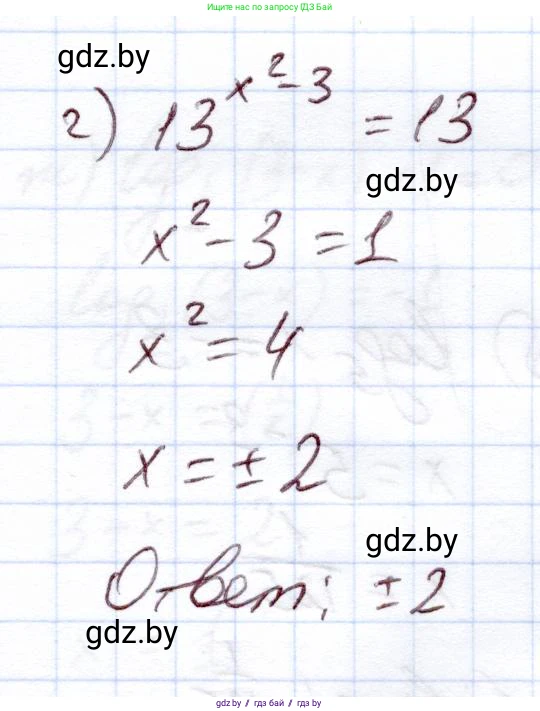 Ищите нас по запросу ГДЗ Бай
gdz.by
г) 13^{x^2-3} = 13
gdz.by
x^2 - 3 = 1
x^2 = 4
x = ± 2
gdz.by
Ответ: ± 2
gdz.by
gdz.by / гдз бай / гдз by